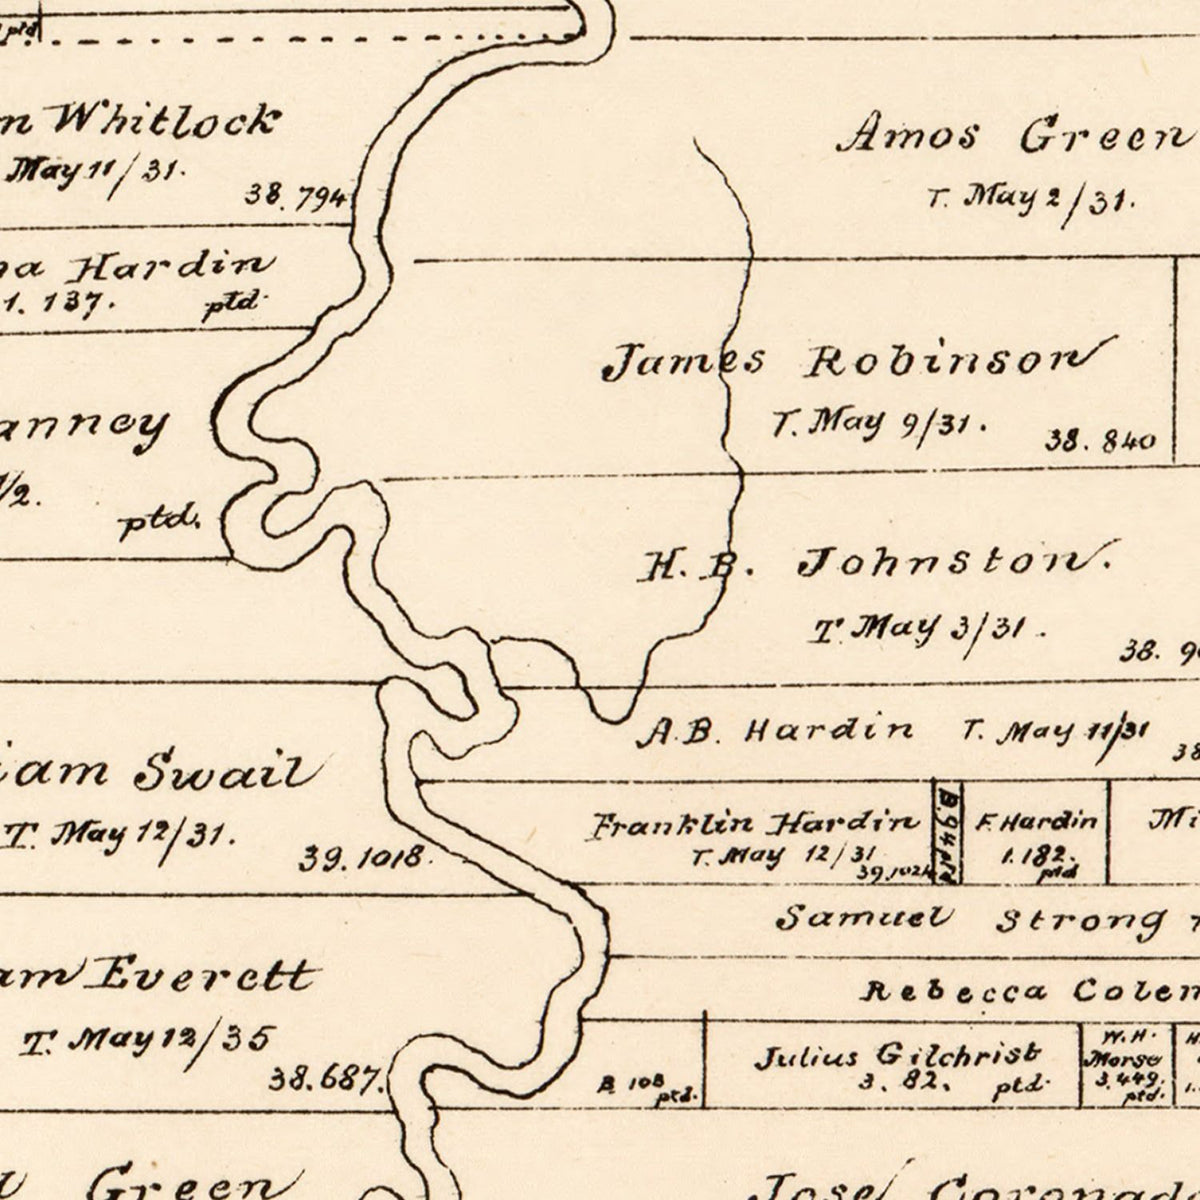 ptd.
Whitlock
May 11/31.
38.794
Hardin
1. 137. ptd.
1/2.
ptd.
Swail
T. May 12/31.
39.1018.
Everett
T. May 12/35
38.687.
Green
Amos Green
T. May 2/31.
James Robinson
T. May 9/31.
38.840
H. B. Johnston.
T. May 3/31.
38.
A.B. Hardin T. May 11/31
38
Franklin Hardin
T. May 12/31
39.1024
B.94 ptd
F. Hardin
1.182.
ptd
Samuel Strong
Rebecca
B 108
ptd.
Julius Gilchrist
3. 82. ptd.
W. H.
Morse
3.449.
ptd.
H.
1.
José